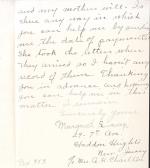 and my mother will. Is
there any way in which
you can help me by sending
me the date of payments
She took the letters when
they arrived so I haven't any
record of them. Thanking
you in advance and hoping
you can help me in this
matter. I remain
Sincerely yours
Margaret
Ave.
Haddon Heights
New Jersey
To Mrs. A. H. Charlton